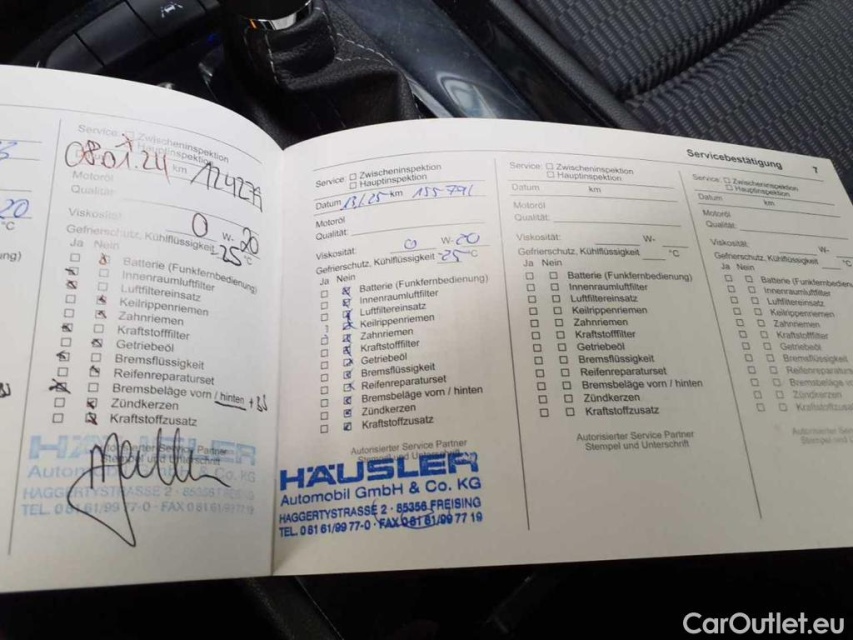 Servicebestätigung 7
20
°C
Service: □ Zwischeninspektion
Hauptinspektion
08.01.24 km 124279
Motoröl
Qualität:
Viskosität: 0 W-20
Gefrierschutz, Kühlflüssigkeit -25 °C
Ja Nein
Batterie (Funkfernbedienung)
Innenraumluftfilter
Luftfiltereinsatz
Keilrippenriemen
Zahnriemen
Kraftstofffilter
Getriebeöl
Bremsflüssigkeit
Reifenreparaturset
Bremsbeläge vorn / hinten
Zündkerzen
Kraftstoffzusatz
Autorisierter Service Partner
Stempel und Unterschrift
HÄUSLER
Automobil GmbH & Co. KG
HAGGERTYSTRASSE 2 · 85356 FREISING
TEL. 0 81 61/99 77-0 · FAX 0 81 61/99 77 19
Service: □ Zwischeninspektion
□ Hauptinspektion
Datum 13/25 km 155791
Motoröl
Qualität:
Viskosität: 0 W-20
Gefrierschutz, Kühlflüssigkeit -25 °C
Ja Nein
Batterie (Funkfernbedienung)
Innenraumluftfilter
Luftfiltereinsatz
Keilrippenriemen
Zahnriemen
Kraftstofffilter
Getriebeöl
Bremsflüssigkeit
Reifenreparaturset
Bremsbeläge vorn / hinten
Zündkerzen
Kraftstoffzusatz
Autorisierter Service Partner
Stempel und Unterschrift
HÄUSLER
Automobil GmbH & Co. KG
HAGGERTYSTRASSE 2 · 85356 FREISING
TEL. 0 81 61/99 77-0 · FAX 0 81 61/99 77 19
Service: □ Zwischeninspektion
□ Hauptinspektion
Datum km
Motoröl
Qualität:
Viskosität: W-
Gefrierschutz, Kühlflüssigkeit °C
Ja Nein
□ □ Batterie (Funkfernbedienung)
□ □ Innenraumluftfilter
□ □ Luftfiltereinsatz
□ □ Keilrippenriemen
□ □ Zahnriemen
□ □ Kraftstofffilter
□ □ Getriebeöl
□ □ Bremsflüssigkeit
□ □ Reifenreparaturset
□ □ Bremsbeläge vorn / hinten
□ □ Zündkerzen
□ □ Kraftstoffzusatz
Autorisierter Service Partner
Stempel und Unterschrift
Service: □ Zwischeninspektion
□ Hauptinspektion
Datum km
Motoröl
Qualität:
Viskosität: W-
Gefrierschutz, Kühlflüssigkeit °C
Ja Nein
□ □ Batterie (Funkfernbedien
□ □ Innenraumluftfilter
□ □ Luftfiltereinsatz
□ □ Keilrippenriemen
□ □ Zahnriemen
□ □ Kraftstofffilter
□ □ Getriebeöl
□ □ Bremsflüssigkeit
□ □ Reifenreparaturset
□ □ Bremsbeläge vo
□ □ Zündkerzen
□ □ Kraftstoffzusatz
Autorisierter Se
Stempel und
CarOutlet.eu